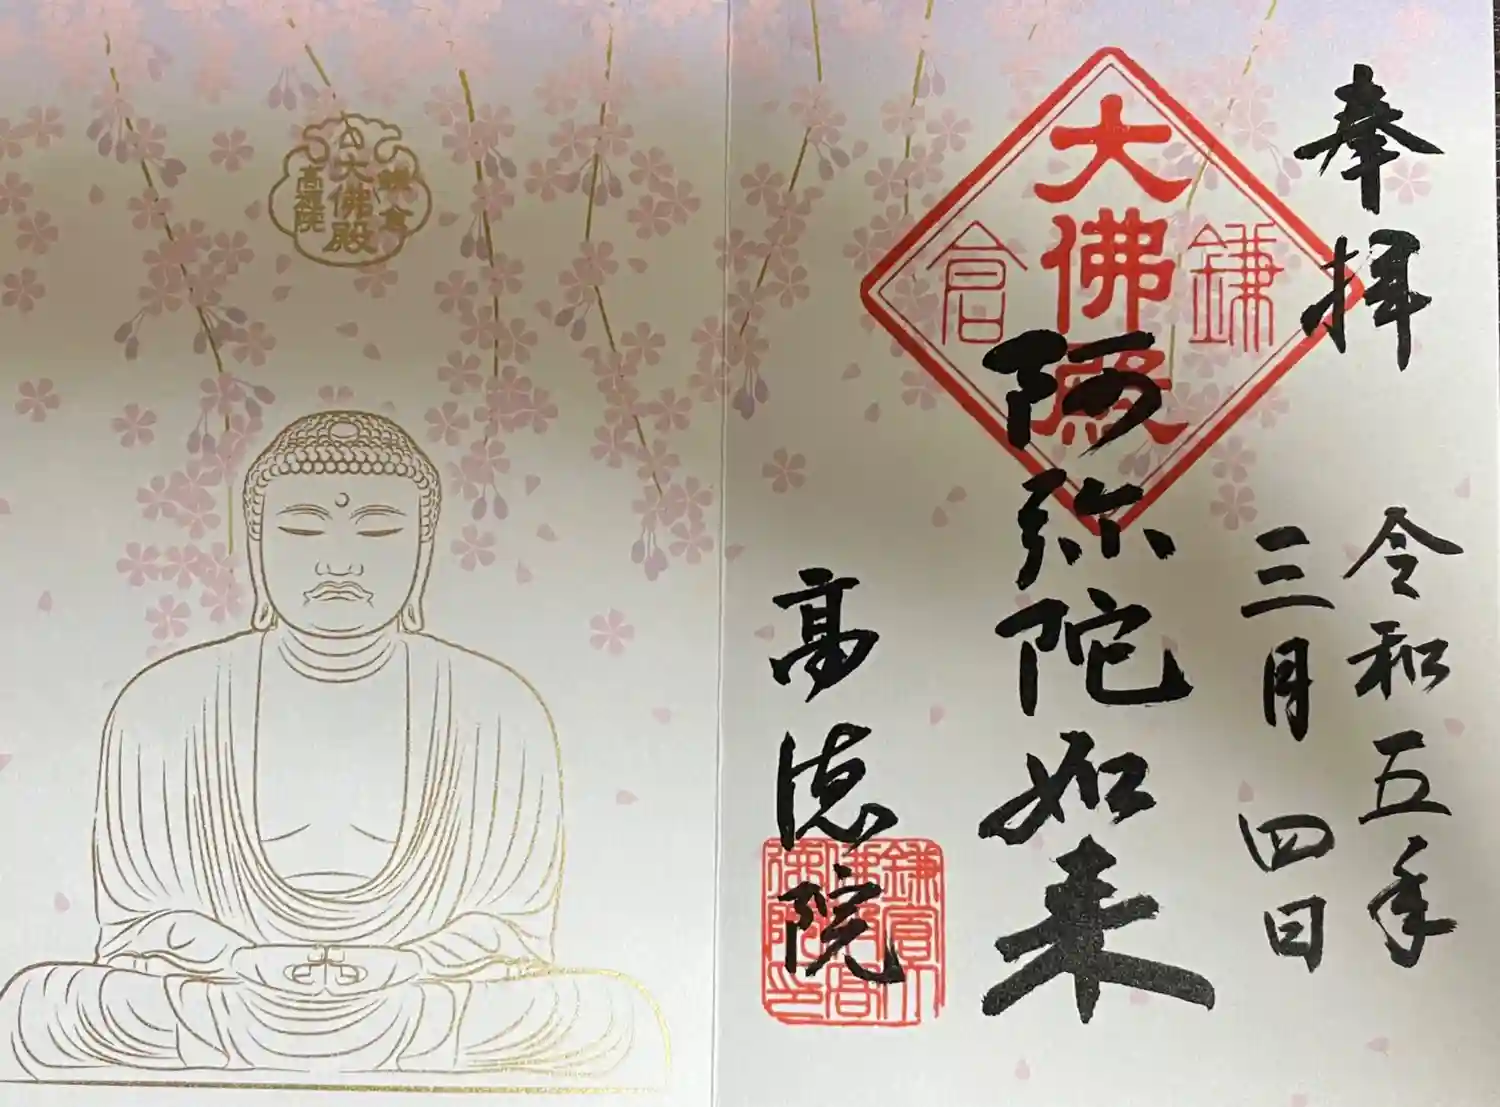 奉拝
令和五年
三月四日
鎌倉
大佛殿
阿弥陀如来
高徳院
鎌倉
大佛殿
高徳院